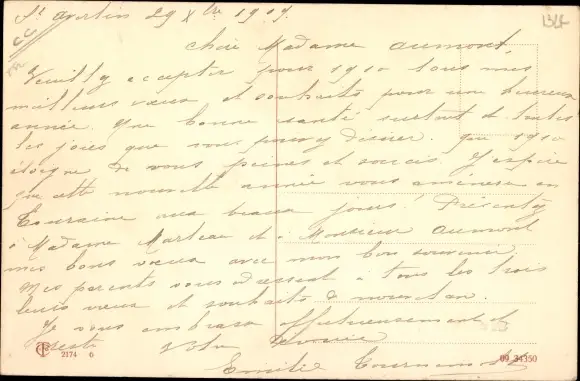 St Avertin 29 Xbre 1909.
Chère Madame Aumont,
Veuilly accepter pour 1910 tous mes
meilleurs vœux et souhaits pour une heureuse
année. Que bonne santé surtout et toutes
les joies que vous pouvez désirer. que 1910
éloigne de vous peines et soucis. J'espère
que cette nouvelle année vous amènera en
Touraine aux beaux jours! Présentez
à Madame Marteau et à Monsieur Aumont
mes bons vœux avec mon bon souvenir.
Mes parents vous adressent à tous les trois
leurs vœux et souhaits de nouvel an.
Je vous embrasse affectueusement et
reste Votre
Emilie
2174 6
09 34350